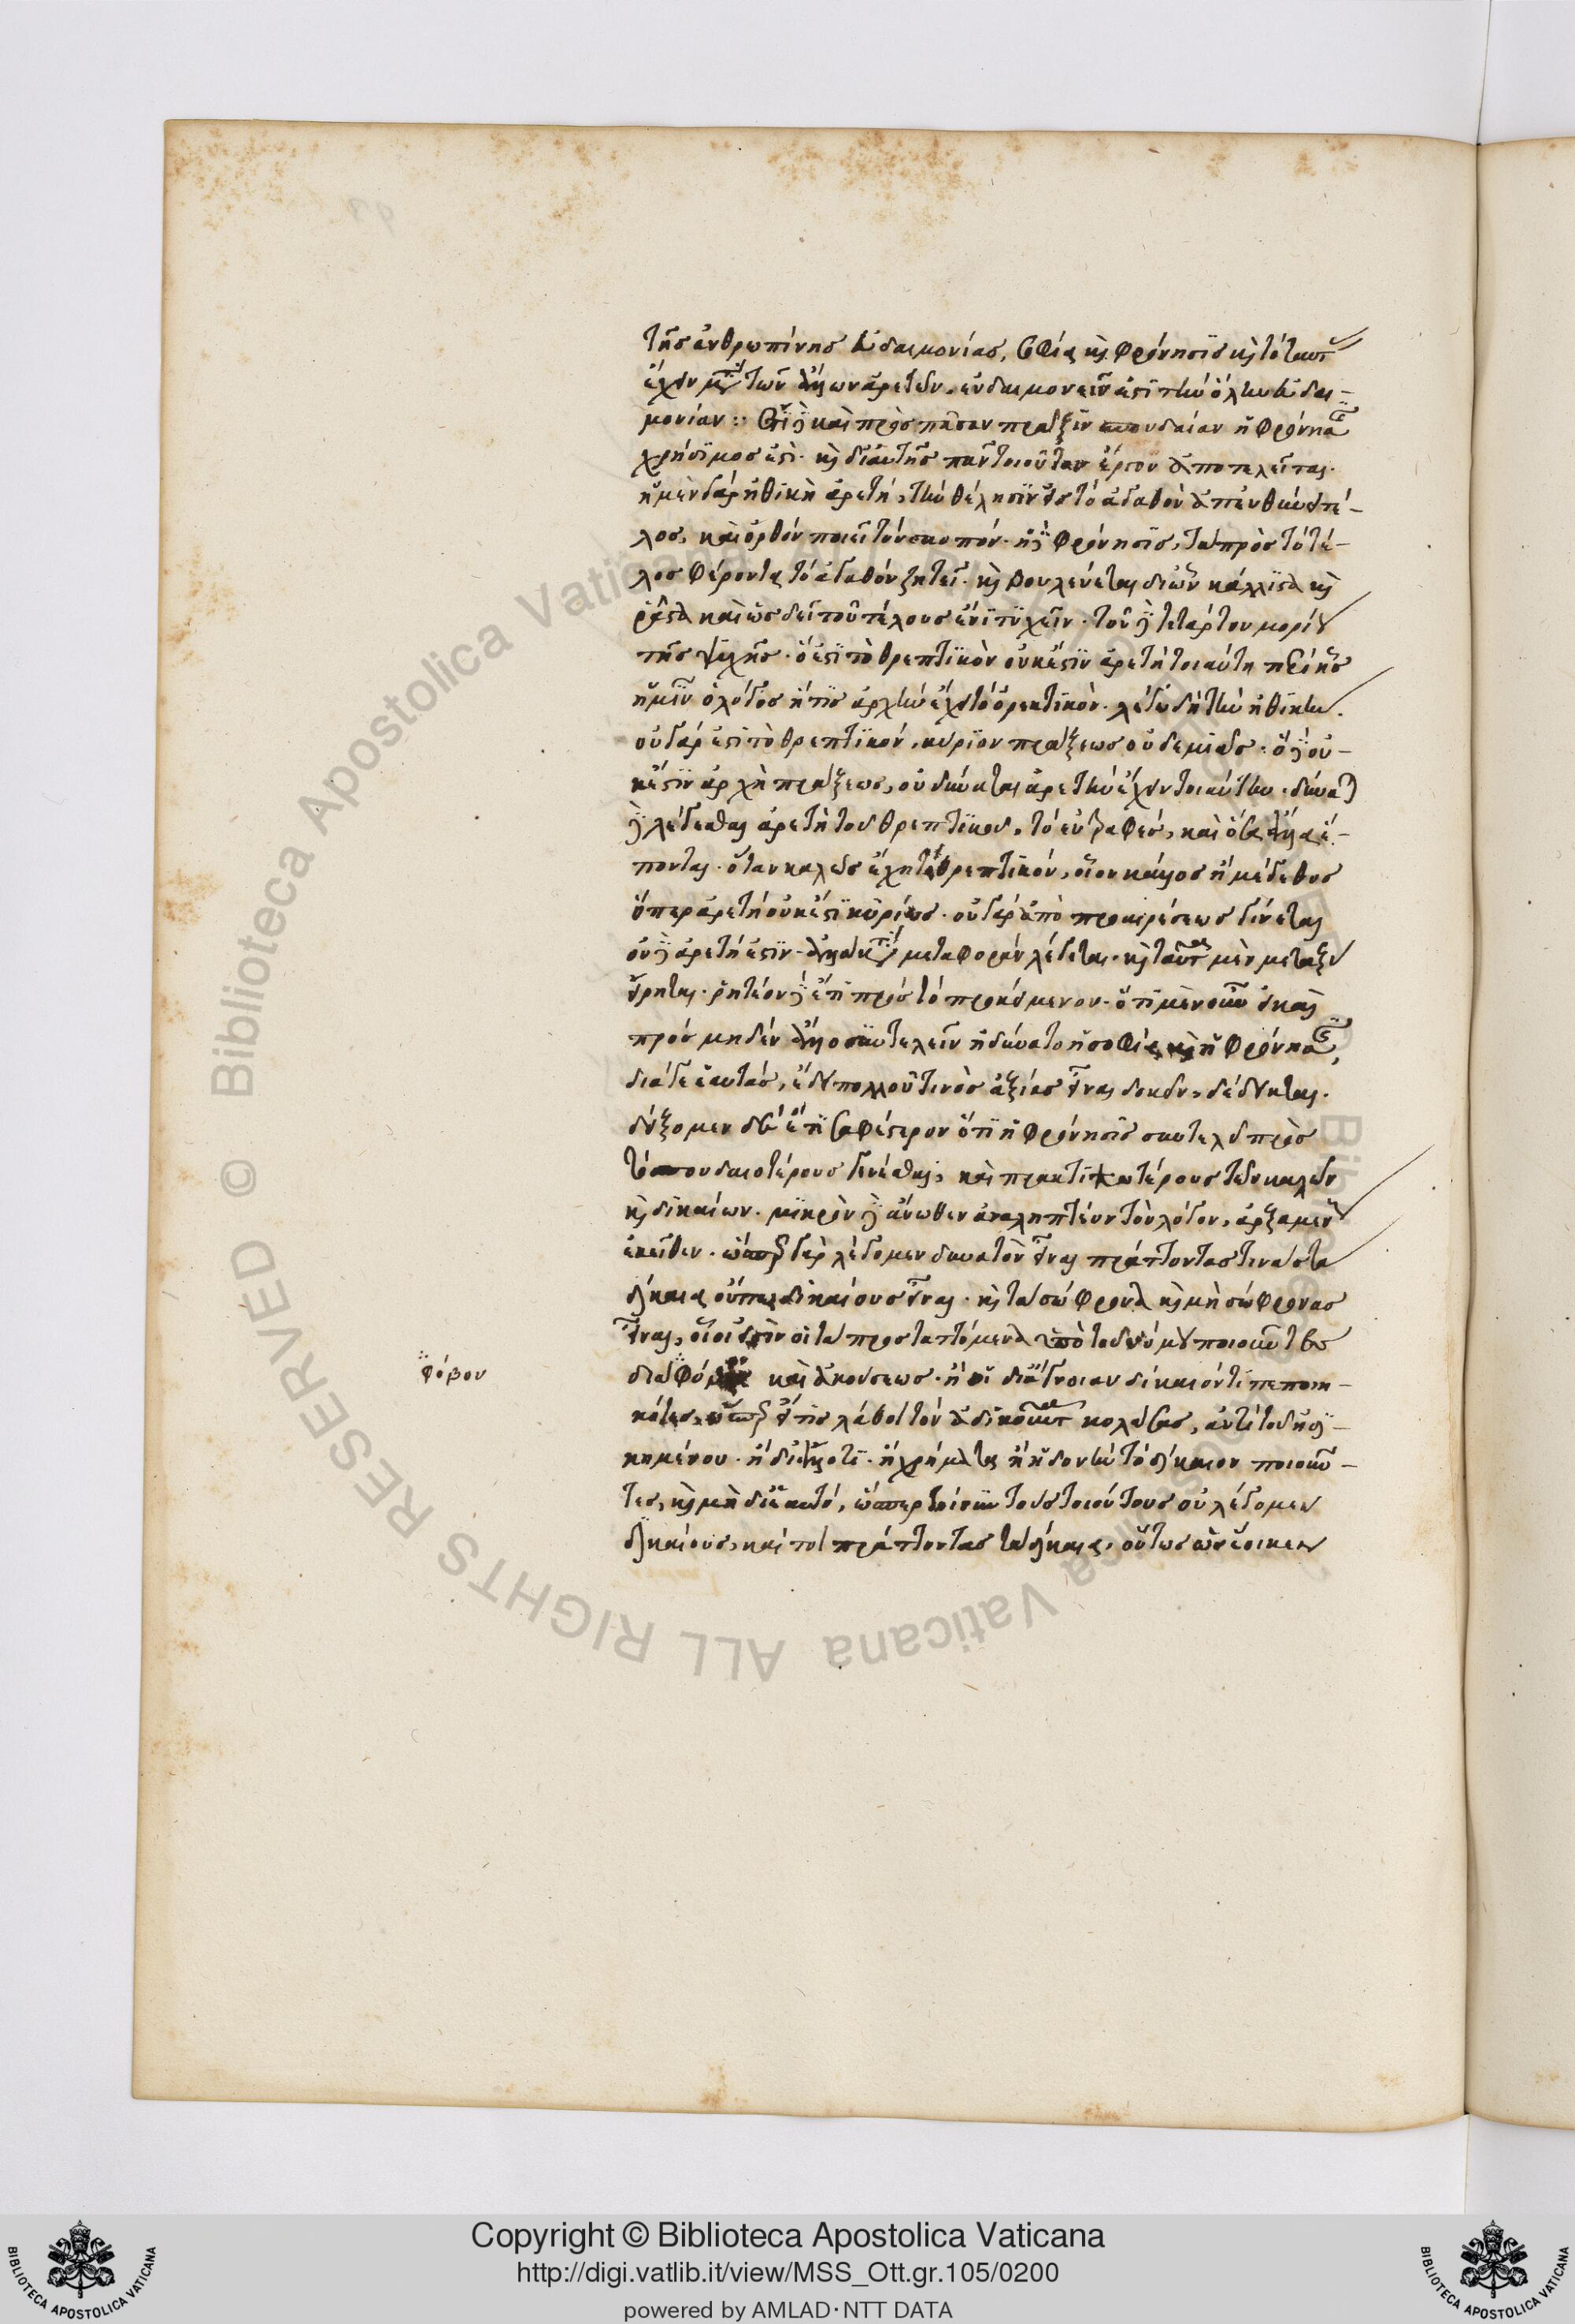 τῆς ἀνθρωπίνης εὐδαιμονίας, σοφία καὶ φρόνησις καὶ τὸ ταύτην
ἔχειν μετὰ τῶν ἄλλων ἀρετῶν, εὐδαιμονεῖν ἐστὶ τὴν ὅλην εὐδαι-
μονίαν : ἔτι δὲ καὶ πρὸς πᾶσαν πρᾶξιν σπουδαίαν ἡ φρόνησις
χρήσιμος ἐστί. καὶ δι' αὐτῆς πᾶν τοιοῦτον ἔργον ἀποτελεῖται.
ἡ μὲν γὰρ ἠθικὴ ἀρετή, τὴν θέλησιν εἰς τὸ ἀγαθὸν ἀπευθύνει τέ-
λος, καὶ ὀρθὸν ποιεῖ τὸν σκοπόν. ἡ δὲ φρόνησις, τὰ πρὸς τὸ τέ-
λος φέροντα τὸ ἀγαθὸν ζητεῖ. καὶ βουλεύεται δι' ὧν κάλλιστα καὶ
ῥᾷστα καὶ ὡς δεῖ τοῦ τέλους ἐπιτυχεῖν. τοῦ δὲ τετάρτου μορίου
τῆς ψυχῆς. ὅ ἐστι τὸ θρεπτικὸν οὐκ ἔστιν ἀρετὴ τοιαύτη περὶ ἧς
ἡμῖν ὁ λόγος ἥτις ἀρχὴν ἔχει τὸ ὀρεκτικόν. λέγω δὴ τὴν ἠθικήν.
οὐ γάρ ἐστι τὸ θρεπτικόν, κύριον πράξεως οὐδεμιᾶς. ὃ δὲ οὐ-
κ ἔστιν ἀρχὴ πράξεως, οὐ δύναται ἀρετὴν ἔχειν τοιαύτην. δύναται
δὲ λέγεσθαι ἀρετὴ τοῦ θρεπτικοῦ, τὸ εὐτραφές, καὶ ὅσα ἄλλα ἕ-
πονται. ὅταν καλῶς ἔχῃ τὸ θρεπτικόν, οἷον κάλλος ἢ μέγεθος
ὅπερ ἀρετὴ οὐκ ἔστι κυρίως. οὐ γὰρ ἀπὸ προαιρέσεως γίνεται
οὐδὲ ἀρετή ἐστιν. ἀλλὰ κατὰ μεταφορὰν λέγεται. καὶ ταῦτα μὲν μεταξὺ
εἴρηται. ῥητέον δὲ ἔτι πρὸς τὸ προκείμενον. ὅτι μὲν οὖν εἰ καὶ
πρὸς μηδὲν ἄλλο συντελεῖν ἠδύνατο ἡ σοφία καὶ ἡ φρόνησις,
διά γε ἑαυτάς, ἔδει πολλοῦ τινος ἀξίας εἶναι δοκεῖν, δέδεικται.
δείξομεν δὲ ἔτι σαφέστερον ὅτι ἡ φρόνησις συντελεῖ πρὸς
τὸ σπουδαιοτέρους γενέσθαι, καὶ πρακτικωτέρους τῶν καλῶν
καὶ δικαίων. μικρὸν δὲ ἄνωθεν ἀναληπτέον τὸν λόγον, ἀρξαμένοις
ἐκεῖθεν. ὥσπερ γὰρ λέγομεν δυνατὸν εἶναι πράττοντάς τινας τὰ
δίκαια οὔπω δικαίους εἶναι. καὶ τὰ σώφρονα καὶ μὴ σώφρονας
εἶναι, οἷοί εἰσιν οἱ τὰ προσταττόμενα ὑπὸ τοῦ νόμου ποιοῦντες
διὰ καὶ ἀκουσίως. ἢ οἱ δι' ἄγνοιαν δίκαιόν τι πεποιη-
φόβου
κότες, ὥσπερ εἴ τις λάθοι τὸν ἀδικοῦντα κολάσας, ἀντὶ τοῦ ἠδι-
κημένου. ἢ δι' ἄλλο τι. ἢ χρήματα ἢ ἡδονὴν τὸ δίκαιον ποιοῦν-
τες, καὶ μὴ δι' ἑαυτό, ὥσπερ τοίνυν τοὺς τοιούτους οὐ λέγομεν
δικαίους, καί τοι πράττοντας τὰ δίκαια, οὕτως ὡς ἔοικεν